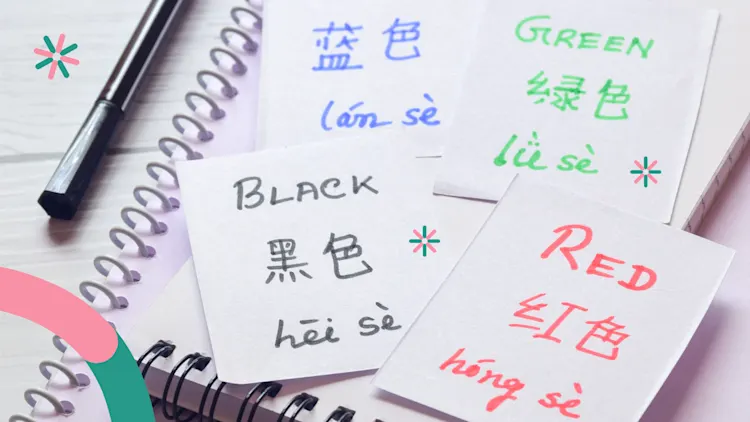 蓝色
lán sè
GREEN
绿色
lǜ sè
BLACK
黑色
hēi sè
RED
红色
hóng sè